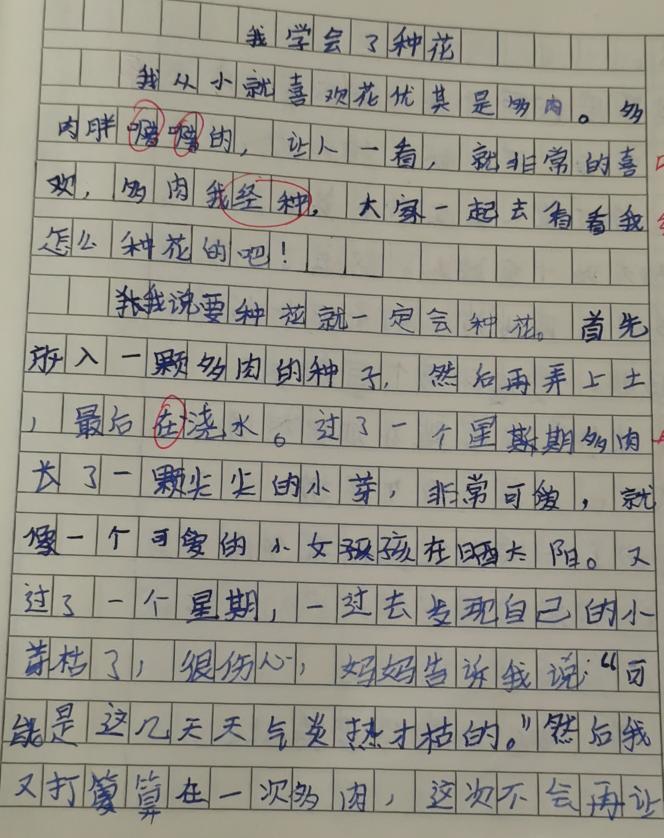 我学会了种花
我从小就喜欢花优其是多肉。多
肉胖嘟嘟的，让人一看，就非常的喜
欢，多肉我经种，大家一起去看看我
怎么种花的吧！
我说要种花就一定会种花。首先
放入一颗多肉的种子，然后再弄上土
，最后在浇水。过了一个星期多肉
长了一颗尖尖的小芽，非常可爱，就
像一个可爱的小女孩在晒太阳。又
过了一个星期，一过去发现自己的小
芽枯了，很伤心，妈妈告诉我说：“可
能是这几天天气炎热才枯的。”然后我
又打算在一次多肉，这次不会再让